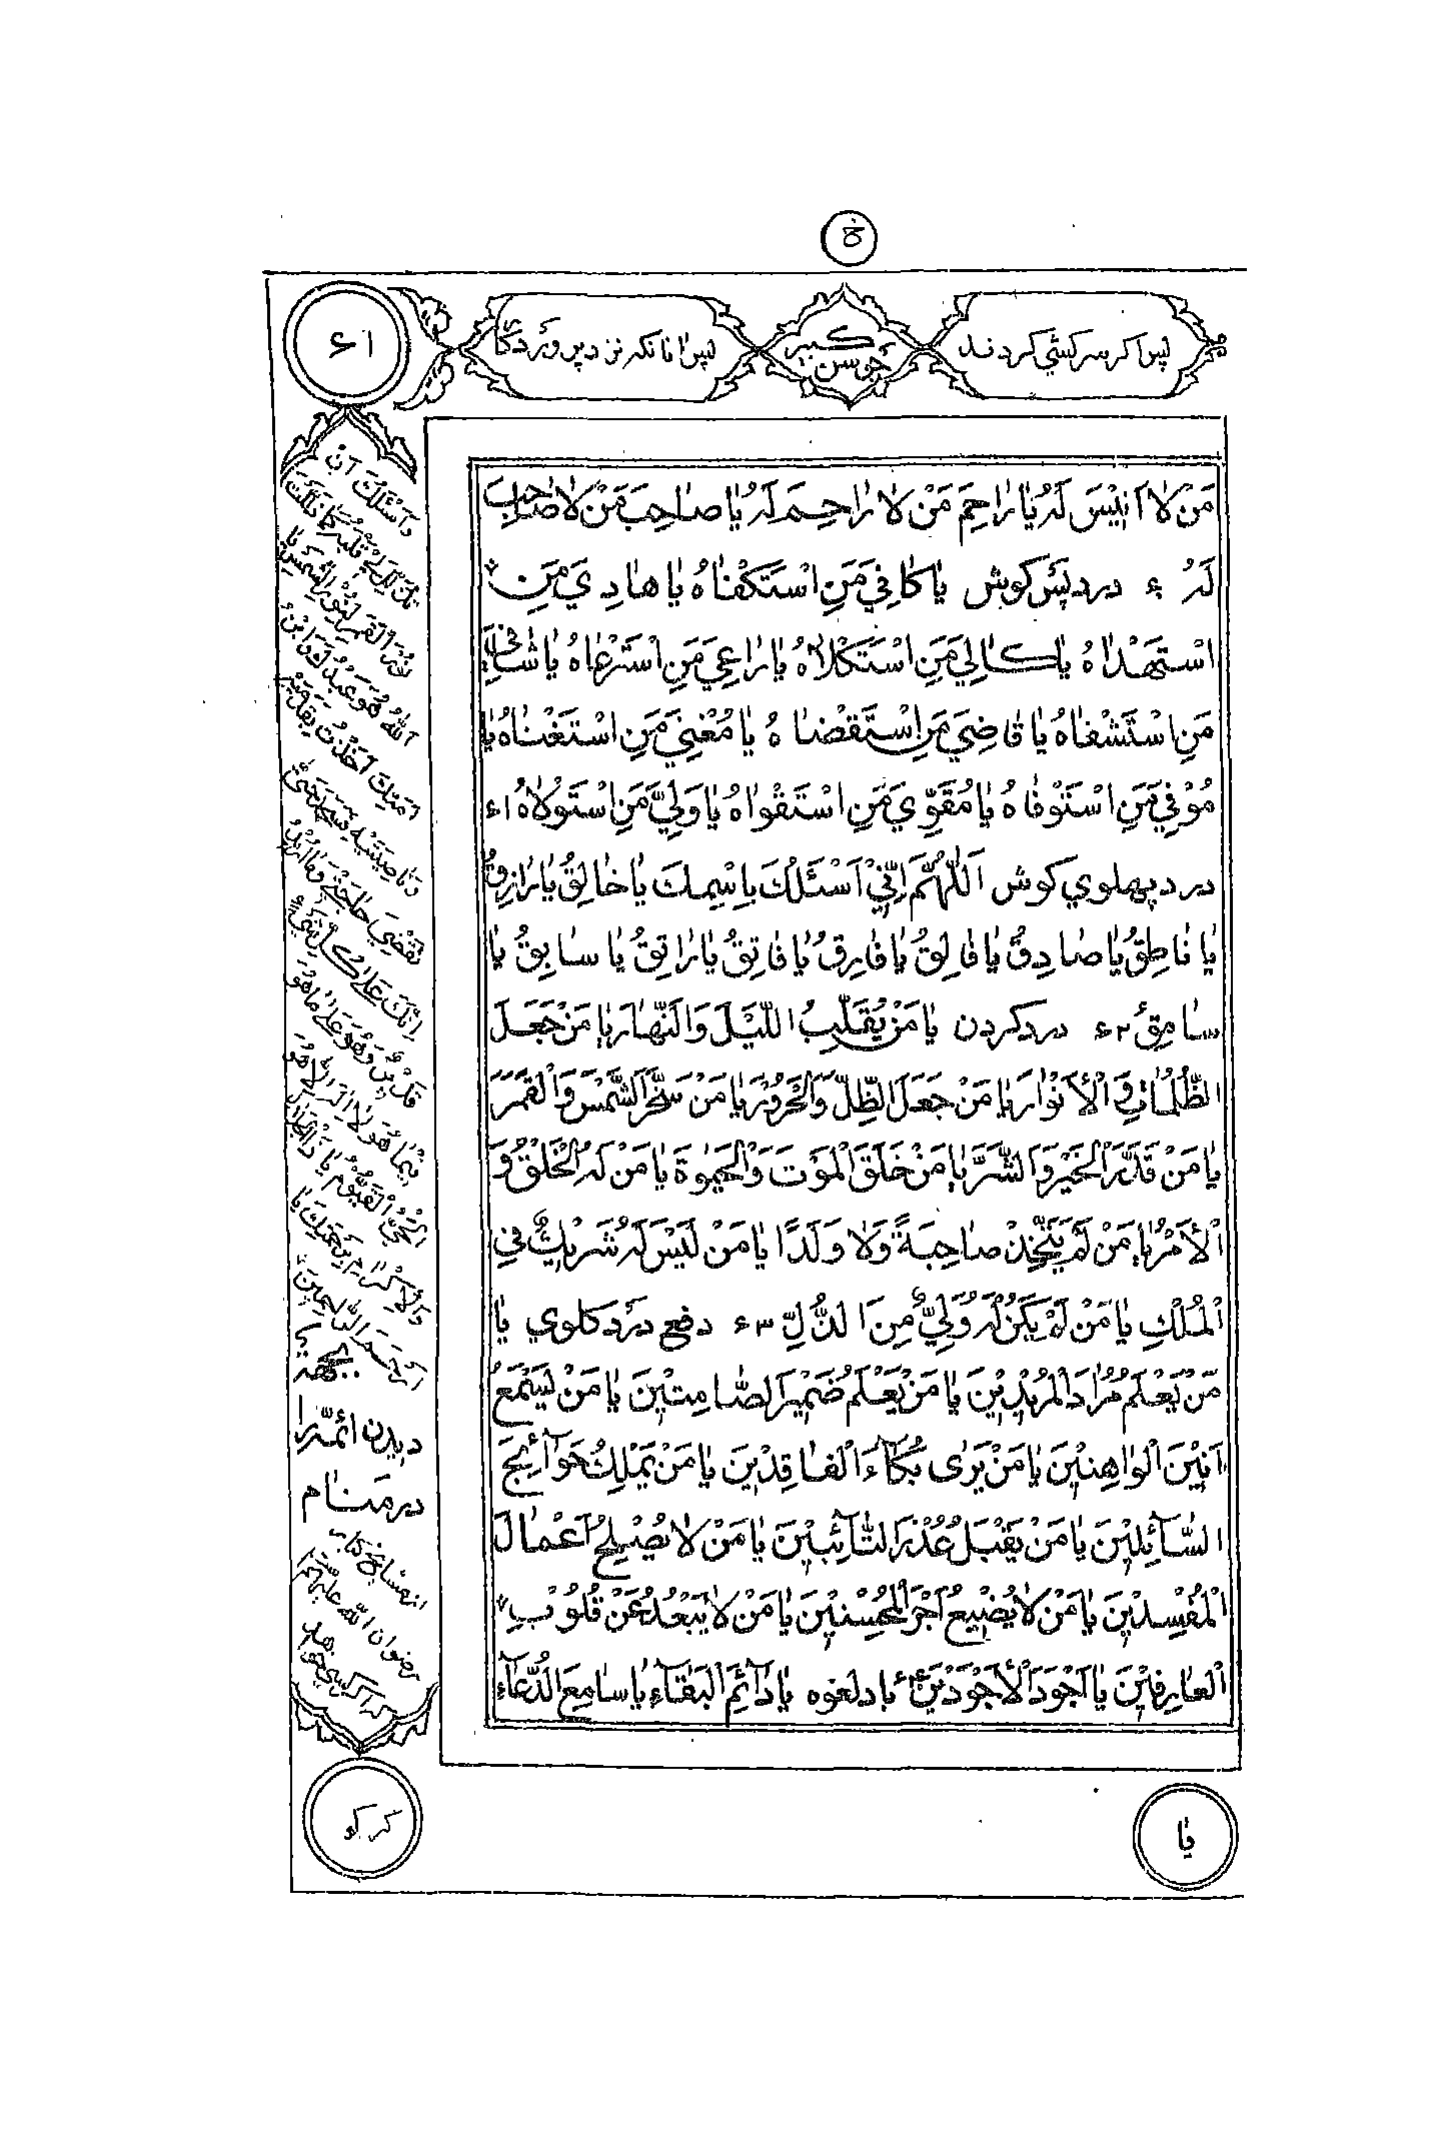 پس اکر سرکشي کردند
جوشن کبیر
پس انانکه نزد پرورَدکٰا
۶۱
مَنْ لاٰ اَنيٖسَ لَهُ يٰا رٰاحِمَ مَنْ لاٰ رٰاحِمَ لَهُ يٰا صٰاحِبَ مَنْ لاٰ صٰاحِبَ
لَهُ ۶۰ درد پَس کوش يٰا كٰافِيَ مَنِ اسْتَكْفٰاهُ يٰا هٰادِيَ مَنِ
اسْتَهْدٰاهُ يٰا كٰالِيَ مَنِ اسْتَكْلاٰهُ يٰا رٰاعِيَ مَنِ اسْتَرْعٰاهُ يٰا شٰافِيَ
مَنِ اسْتَشْفٰاهُ يٰا قٰاضِيَ مَنِ اسْتَقْضٰاهُ يٰا مُغْنِيَ مَنِ اسْتَغْنٰاهُ يٰا
مُوْفِيَ مَنِ اسْتَوْفٰاهُ يٰا مُقَوِّيَ مَنِ اسْتَقْوٰاهُ يٰا وَلِيَّ مَنِ اسْتَوْلاٰهُ ۶۱
درد پهلوي کوش اَللّٰهُمَّ اِنّيٖ اَسْئَلُكَ بِاسْمِكَ يٰا خٰالِقُ يٰا رٰازِقُ
يٰا نٰاطِقُ يٰا صٰادِقُ يٰا فٰالِقُ يٰا فٰارِقُ يٰا فٰاتِقُ يٰا رٰاتِقُ يٰا سٰابِقُ يٰا
سٰامِقُ ۶۲ درد کردن يٰا مَنْ يُقَلِّبُ اللَّيْلَ وَالنَّهٰارَ يٰا مَنْ جَعَلَ
الظُّلُمٰاتِ وَ الْأَنْوٰارَ يٰا مَنْ جَعَلَ الظِّلَّ وَالْحَرُوْرَ يٰا مَنْ سَخَّرَ الشَّمْسَ وَالْقَمَرَ
يٰا مَنْ قَدَّرَ الْخَيْرَ وَ الشَّرَّ يٰا مَنْ خَلَقَ الْمَوْتَ وَالْحَيٰوةَ يٰا مَنْ لَهُ الْخَلْقُ وَ
الْأَمْرُ يٰا مَنْ لَمْ يَتَّخِذْ صٰاحِبَةً وَلاٰ وَلَدًا يٰا مَنْ لَيْسَ لَهُ شَريٖكٌ فيِ
الْمُلْكِ يٰا مَنْ لَمْ يَكُنْ لَهُ وَلِيٌّ مِنَ الذُّلِّ ۶۳ دفع درد کلوي يٰا
مَنْ يَعْلَمُ مُرٰادَ الْمُريٖديٖنَ يٰا مَنْ يَعْلَمُ ضَميٖرَ الصّٰامِتيٖنَ يٰا مَنْ يَسْمَعُ
اَنيٖنَ الْوٰاهِنيٖنَ يٰا مَنْ يَرٰى بُكٰاءَ الْفٰاقِديٖنَ يٰا مَنْ يَمْلِكُ حَوٰآئِجَ
السّٰآئِليٖنَ يٰا مَنْ يَقْبَلُ عُذْرَ التّٰآئِبيٖنَ يٰا مَنْ لاٰ يُصْلِحُ اَعْمٰالَ
الْمُفْسِديٖنَ يٰا مَنْ لاٰ يُضيٖعُ اَجْرَ الْمُحْسِنيٖنَ يٰا مَنْ لاٰ يَبْعُدُ عَنْ قُلُوْبِ
الْعٰارِفيٖنَ يٰا اَجْوَدَ الْأَجْوَديٖنَ باد لغوه يٰا دٰآئِمَ الْبَقٰآءِ يٰا سٰامِعَ الدُّعٰآءِ
وَ اَسْئَلُكَ اَنْ
نُوْرَ الْقَمَرِ لِنُوْرِ الشَّمْسِ يٰا
اللّٰهُ هُوَ عَبْدُكَ وَابْنُ
اَمَتِكَ اَخَذْتُ بِقَدَمَيْهِ
وَنٰاصِيَتِهِ
تَقْضِيَ حٰاجَتيٖ
اِنَّكَ عَلىٰ كُلِّ شَيْءٍ
قَديٖرٌ وَهُوَ عَلىٰ مٰا هُوَ
فيٖمٰا هُوَ لاٰ اِلٰهَ اِلاّٰ هُوَ
الْحَيُّ الْقَيُّوْمُ يٰا ذَا الْجَلاٰلِ
وَالْاِكْرٰامِ بِرَحْمَتِكَ يٰا
اَرْحَمَ الرّٰاحِميٖنَ
بجههة
ديدن ائمّه را
در مَنٰام
رضوان الله عليهم
يٰا